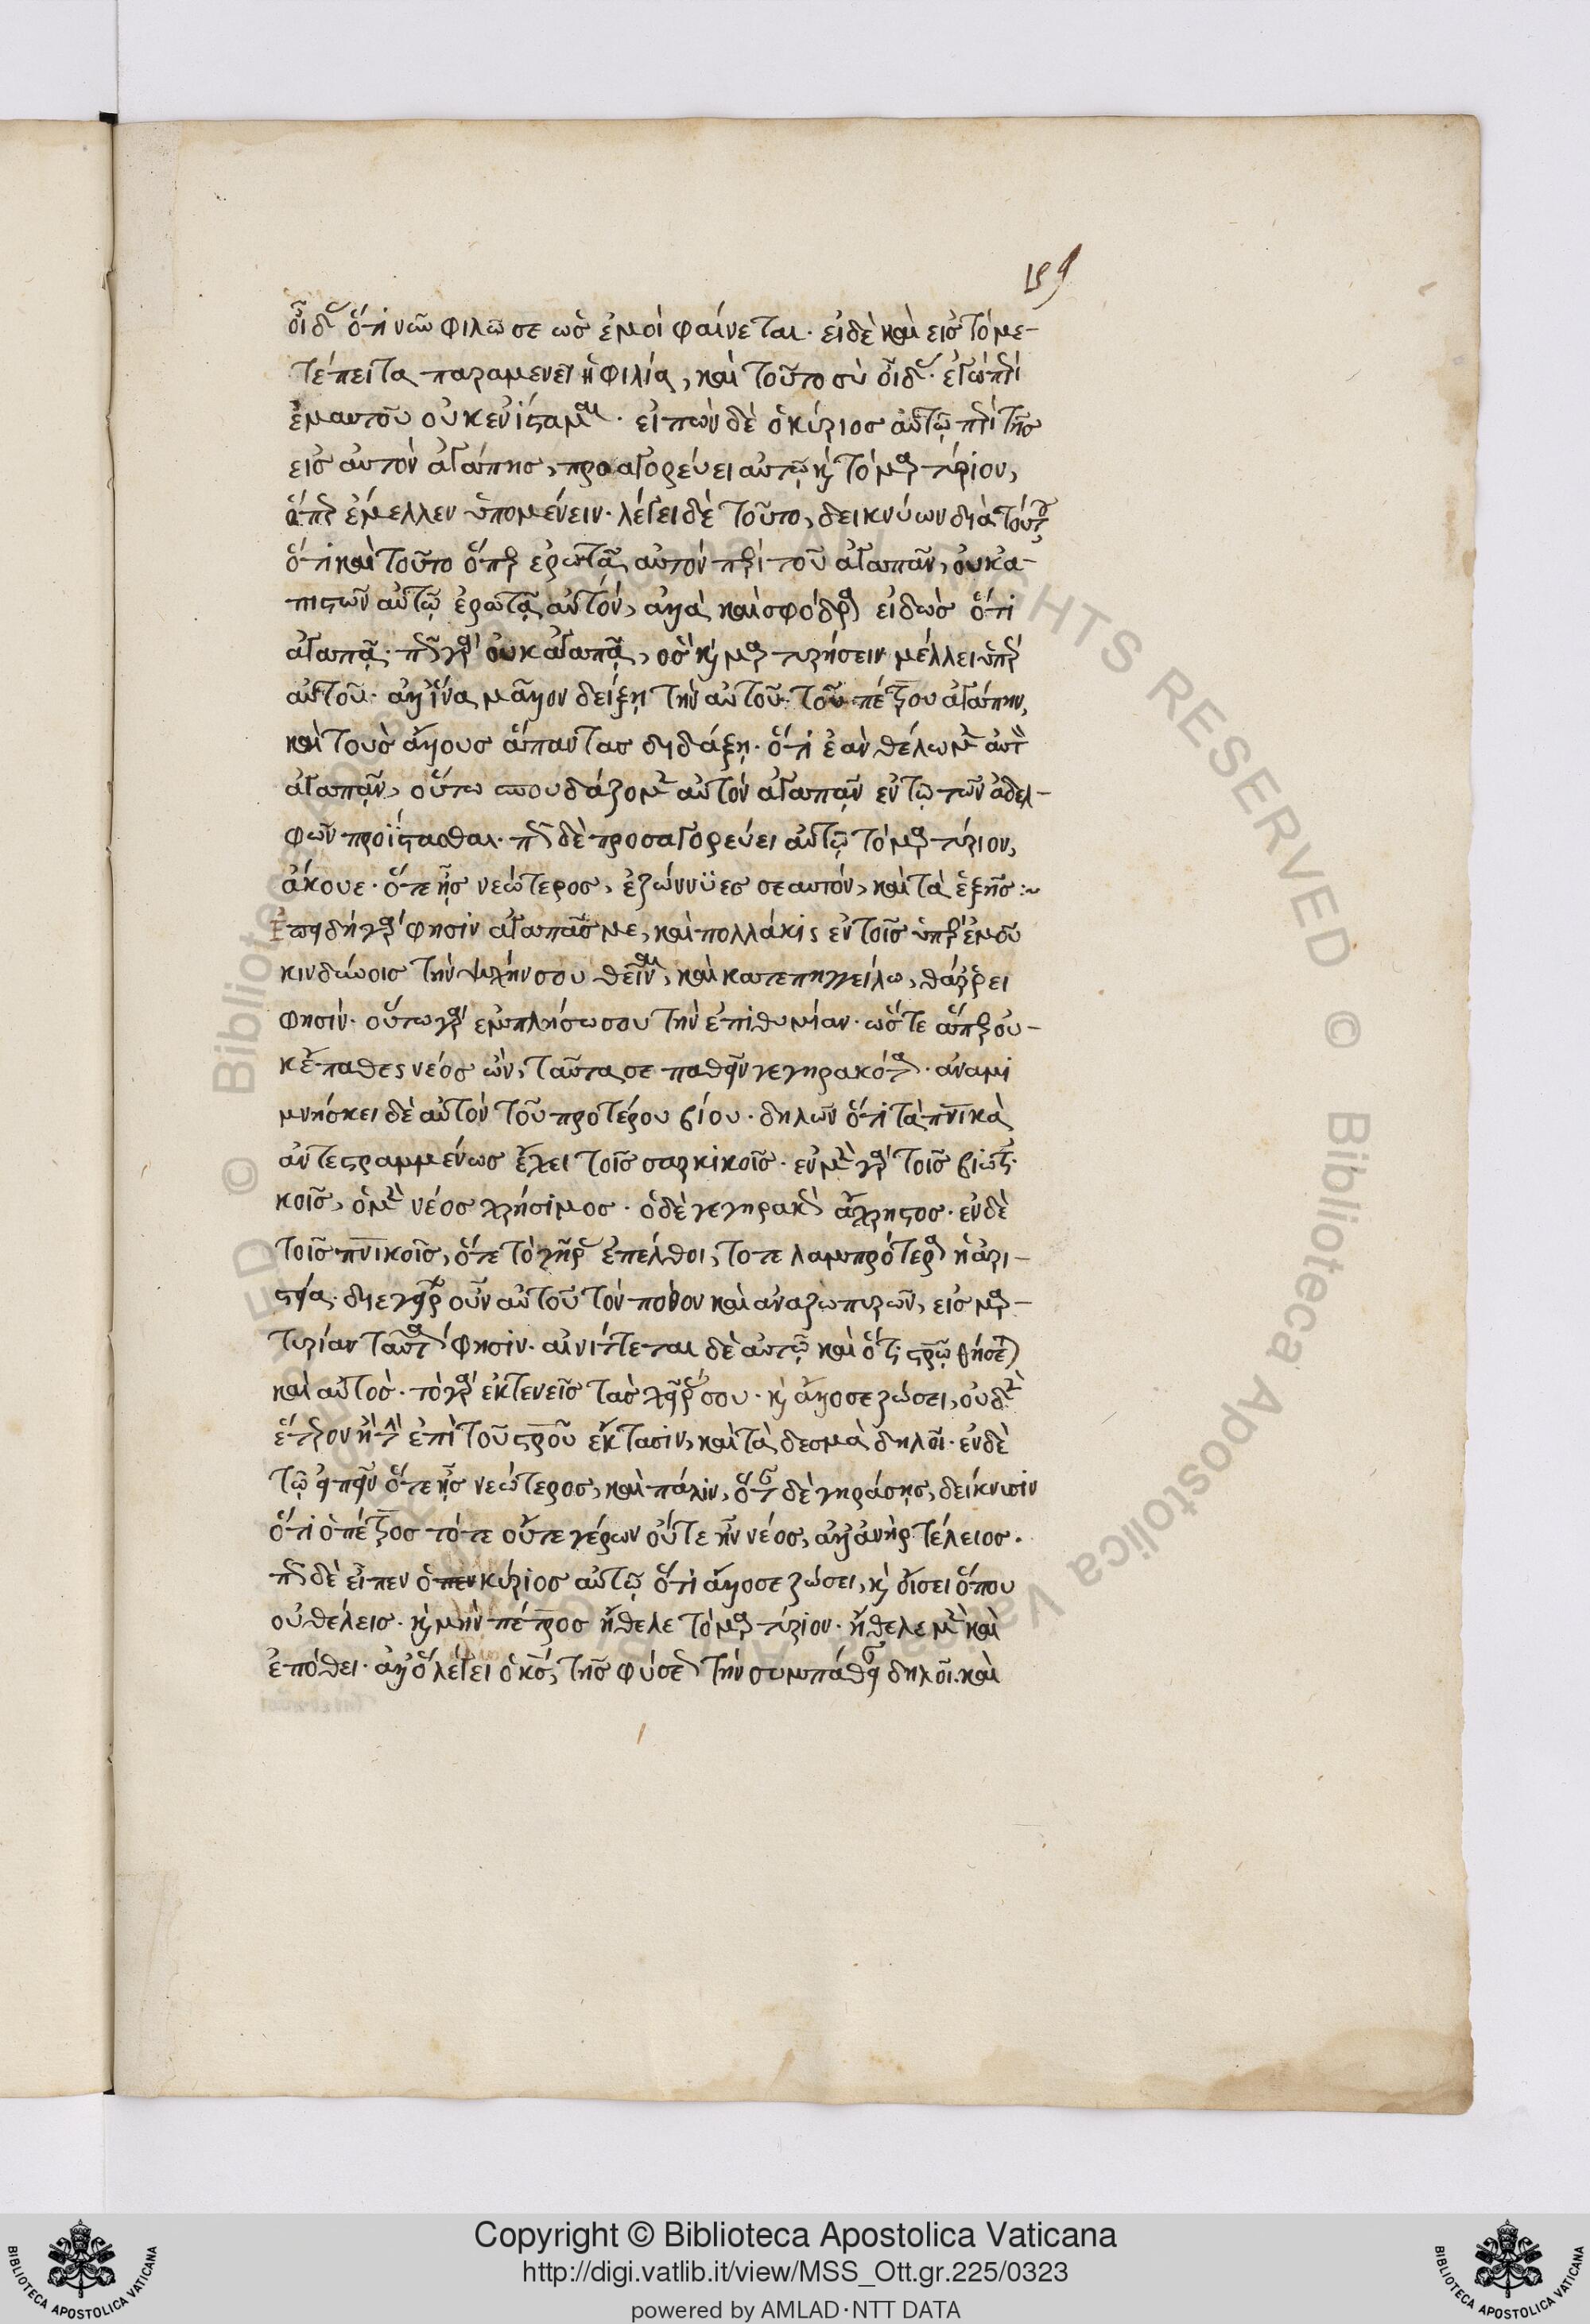 159
οἶδας ὅτι νῦν φιλῶ σε ὡς ἐμοὶ φαίνεται· εἰ δὲ καὶ εἰς τὸ με-
τέπειτα παραμενεῖ ἡ φιλία, καὶ τοῦτο σὺ οἶδας· ἐγὼ περὶ
ἐμαυτοῦ οὐκ ἐνίσταμαι· εἰπὼν δὲ ὁ κύριος αὐτῷ περὶ τῆς
εἰς αὐτὸν ἀγάπης, προαγορεύει αὐτῷ καὶ τὸ μαρτύριον,
ὅπερ ἔμελλεν ὑπομένειν· λέγει δὲ τοῦτο, δεικνύων διὰ τούτου
ὅτι καὶ τοῦτο ὅπερ ἐρωτᾷ αὐτὸν περὶ τοῦ ἀγαπᾶν, οὐκ ἀ-
πιστῶν αὐτῷ ἐρωτᾷ αὐτόν, ἀλλὰ καὶ σφόδρα εἰδὼς ὅτι
ἀγαπᾷ· πῶς γὰρ οὐκ ἀγαπᾷ, ὃς καὶ μαρτυρήσειν μέλλει ὑπὲρ
αὐτοῦ· ἀλλ' ἵνα μᾶλλον δείξῃ τὴν αὐτοῦ τοῦ πέτρου ἀγάπην,
καὶ τοὺς ἄλλους ἅπαντας διδάξῃ· ὅτι ἐὰν θέλωμεν αὐτὸν
ἀγαπᾶν, οὕτω σπουδάζομεν αὐτὸν ἀγαπᾶν ἐν τῷ τῶν ἀδελ-
φῶν προΐστασθαι· πῶς δὲ προσαγορεύει αὐτῷ τὸ μαρτύριον,
ἄκουε· ὅτε ἦς νεώτερος, ἐζώννυες σεαυτόν, καὶ τὰ ἑξῆς :~
Ἐπειδὴ γάρ φησιν ἀγαπᾶς με, καὶ πολλάκις ἐν τοῖς ὑπὲρ ἐμοῦ
κινδύνοις τὴν ψυχήν σου θεῖναι, καὶ κατεπηγγείλω, θάρρει
φησίν· οὕτω γὰρ ἐμπλήσω σου τὴν ἐπιθυμίαν· ὥστε ἅπερ οὐ-
κ ἔπαθες νέος ὤν, ταῦτα σε παθεῖν γεγηρακότα· ἀναμι
μνήσκει δὲ αὐτὸν τοῦ προτέρου βίου· δηλῶν ὅτι τὰ πνικὰ
ἀντεστραμμένως ἔχει τοῖς σαρκικοῖς· ἐν μὲν γὰρ τοῖς βιωτι-
κοῖς, ὁ μὲν νέος χρήσιμος· ὁ δὲ γεγηρακὼς ἄχρηστος· ἐν δὲ
τοῖς πνικοῖς, ὅτε τὸ γῆρας ἐπέλθοι, τότε λαμπρότερα ἡ ἀρι-
στεία· διεγείρων οὖν αὐτοῦ τὸν πόθον καὶ ἀναζωπυρῶν, εἰς μαρ-
τυρίαν ταῦτά φησιν· αἰνίττεται δὲ αὐτῷ καὶ ὅτι στρωθήσεται
καὶ αὐτός· τὸ γὰρ ἐκτενεῖς τὰς χεῖράς σου· καὶ ἄλλος σε ζώσει, οὐδὲν
ἕτερον ἢ τὴν ἐπὶ τοῦ στροῦ ἔκτασιν, καὶ τὰ δεσμὰ δηλοῖ· ἐν δὲ
τῷ εἰπεῖν ὅτε ἦς νεώτερος, καὶ πάλιν, ὅταν δὲ γηράσῃς, δείκνυσιν
ὅτι ὁ πέτρος τότε οὔτε γέρων οὔτε ἦν νέος, ἀλλ' ἀνὴρ τέλειος·
πῶς δὲ εἶπεν ὁ κύριος αὐτῷ ὅτι ἄλλος σε ζώσει, καὶ οἴσει ὅπου
οὐ θέλεις· καὶ μὴν πέτρος ἤθελε τὸ μαρτύριον· ἤθελε μὲν καὶ
ἐπόθει· ἀλλ' ὃ λέγει ὁ κς, τῆς φύσεως τὴν συμπάθειαν δηλοῖ· καὶ
Copyright © Biblioteca Apostolica Vaticana
http://digi.vatlib.it/view/MSS_Ott.gr.225/0323
powered by AMLAD·NTT DATA